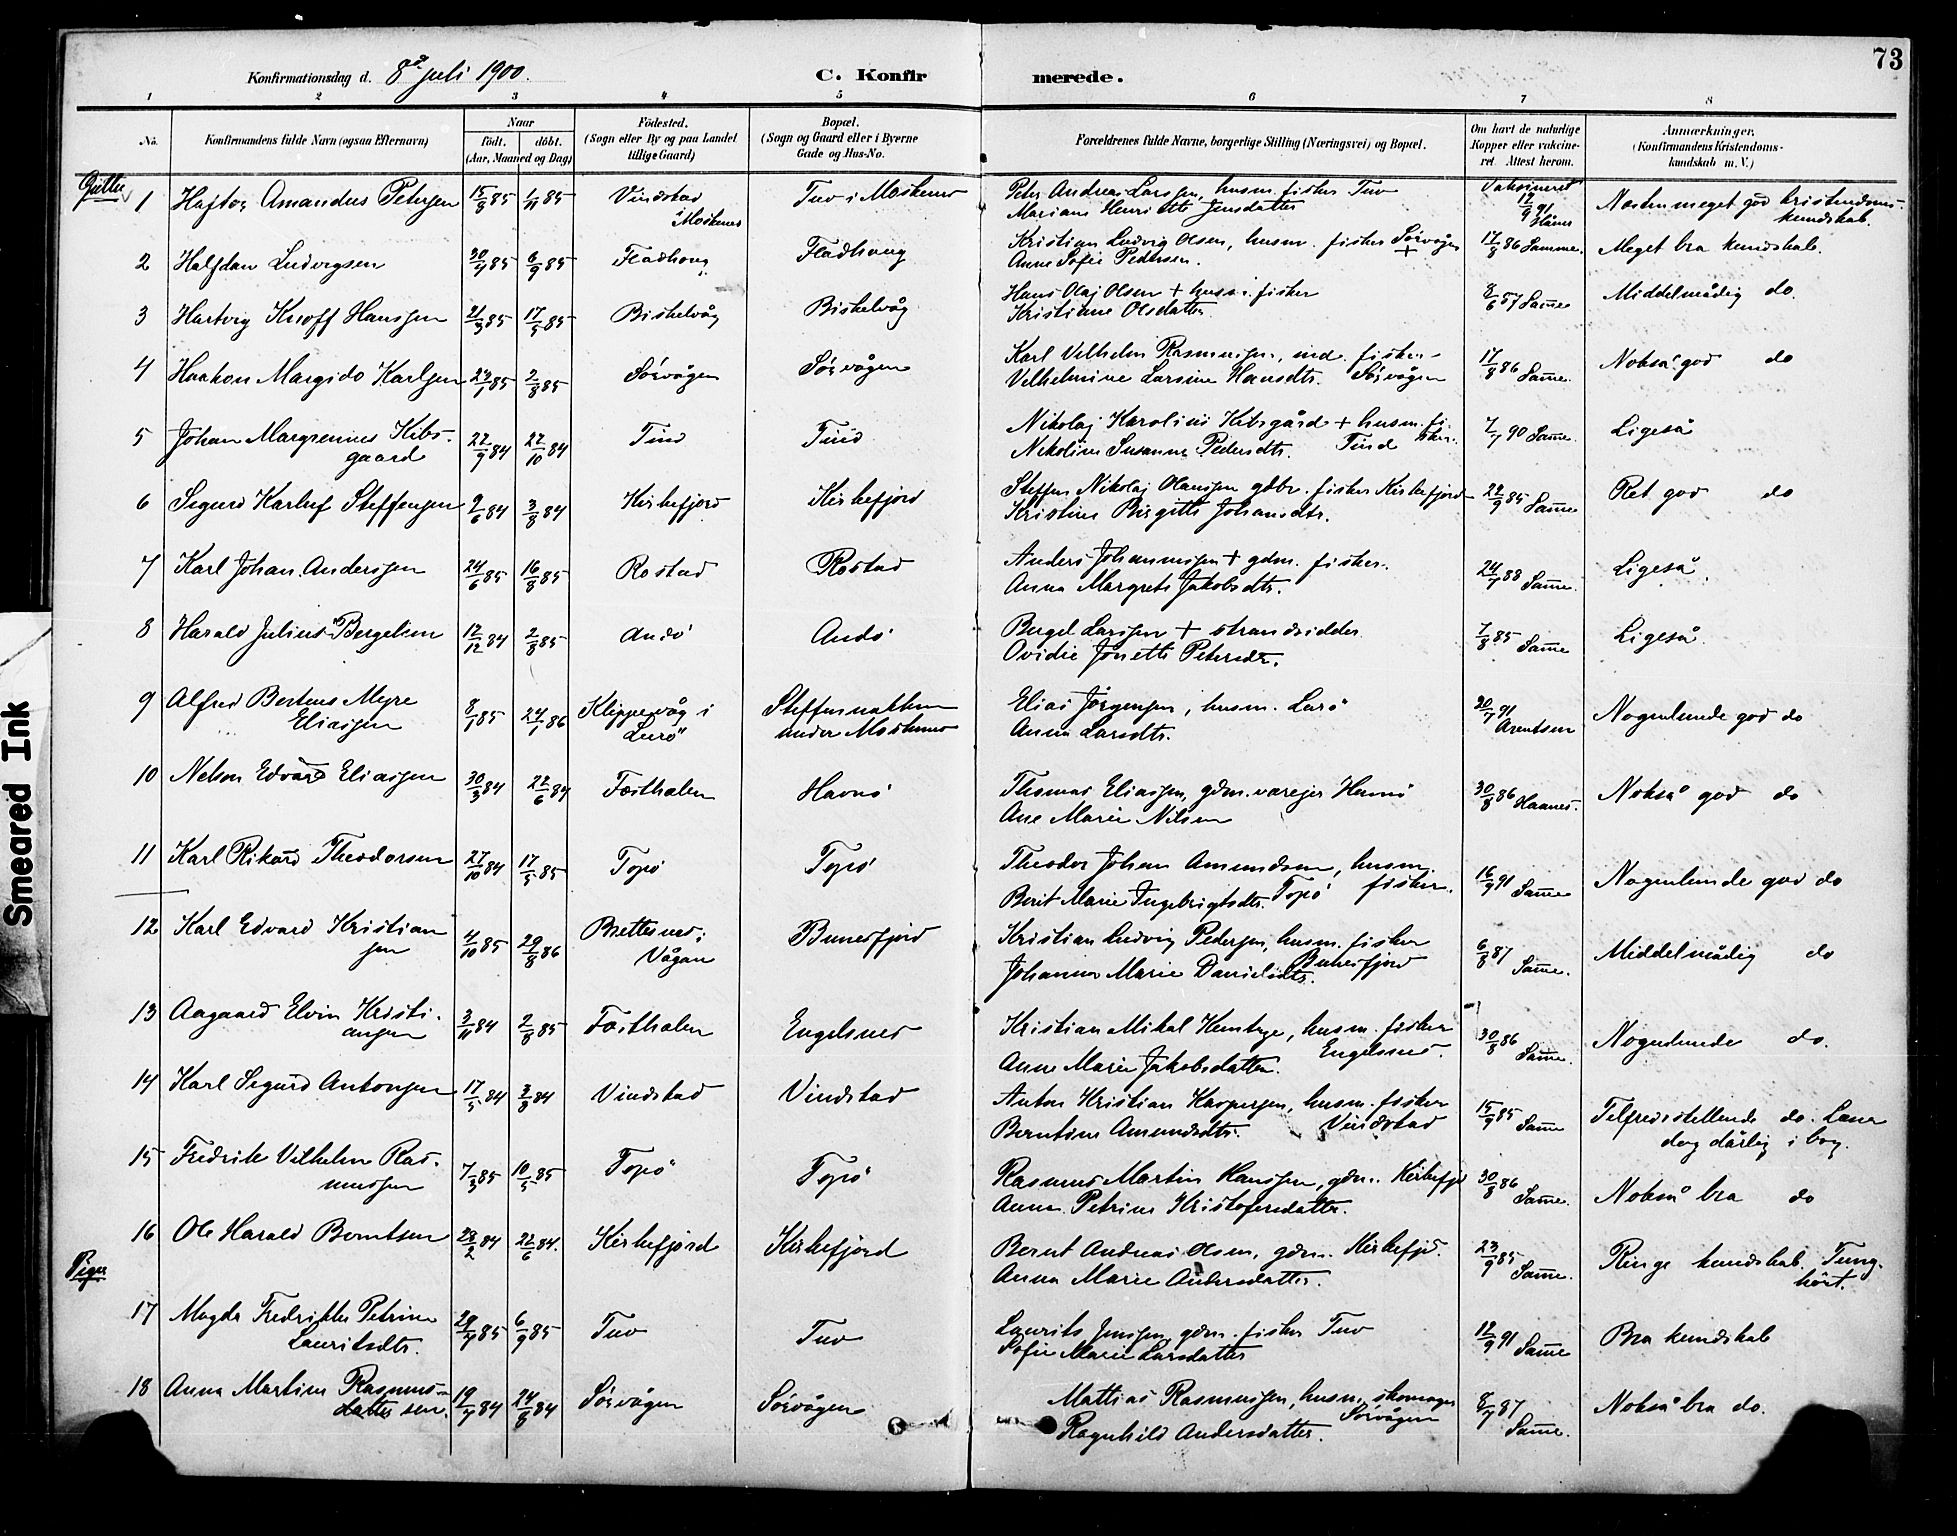 73
Konfirmationsdag d. 8de juli 1900.
C. Konfirmerede.
1 2 3 4 5 6 7 8
No.
Konfirmandens fulde Navn (ogsaa Efternavn)
Naar
født. døbt.
(Aar, Maaned og Dag)
Fødested.
(Sogn eller By og paa Landet
tillige Gaard)
Bopæl.
(Sogn og Gaard eller i Byerne
Gade og Hus-No.
Forældrenes fulde Navne, borgerlige Stilling (Næringsvei) og Bopæl.
Om havt de naturlige
Kopper eller vakcine-
ret. Attest herom.
Anmærkninger.
(Konfirmandens Kristendoms-
kundskab m. V.)
Gutter
1 Hagtor Amandus Petersen 15/8 85 1/11 85 Vindstad
i Moskenes
Tuv i Moskenes
Peter Andreas Larssen, husm. fisker Tuv
Mariane Henriette Jensdatter
Vaksineret
12/9 91
Hånes
Næsten meget god kristendoms-
kundskab.
2 Halfdan Ludvigsen 30/7 85 6/9 85 Fladhaug Fladhaug
Kristian Ludvig Olsen, husm. fisker Sørvågen
Anne Sofie Pedersen. +
17/8 86 Samme. Meget bra kundskab.
3 Hartvig Knoff Hanssen 21/3 85 17/5 85 Biskelvåg Biskelvåg
Hans Olaj Olsen + husm. fisker
Kristiane Olsdatter.
8/6 87 Samme Middelmådig do.
4 Haakon Margido Karlsen 24/1 85 2/8 85 Sørvågen Sørvågen
Karl Vilhelm Rasmussen, ind. fisker
Vilhelmine Larsine Hansdtr. Sørvågen
17/8 86 Samme. Nokså god do
5 Johan Margrenius Kibs-
gaard
22/9 84 22/10 84 Tind Tind
Nikolaj Karolius Kibsgård + husm. fi-
sker.
Nikoline Susanna Pedersdtr. Tind
7/7 90 Samme. Ligeså
6 Sigurd Karluf Steffensen 2/6 84 3/8 84 Kirkefjord Kirkefjord
Steffen Nikolaj Olaussen gdbr. fisker Kirkefjord
Kristine Birgitte Johansdtr.
22/9 85 Samme Ret god do
7 Karl Johan Anderssen 24/6 85 16/8 85 Rostad Rostad
Anders Johannessen + gdm. fisker.
Anna Margrete Jakobsdtr.
24/7 88 Samme. Ligeså.
8 Harald Julius Bergelsen 12/12 84 2/8 85 Andø Andø
Bergel Larssen + strandsidder
Ovidie Jonette Petersdtr.
7/8 85 Samme Ligeså
9 Alfred Berteus Meyre
Eliassen
8/1 85 24/1 86 Klippevåg i
Lurø
Steffennakken
under Moskenes
Elias Jørgensen, husm. Lurø
Anna Larsdtr.
20/7 91
Arentsen
Nogenlunde god do
10 Nelson Edvard Eliassen 30/3 84 22/6 84 Festhælen Havnø
Thomas Eliassen, gdm. værejer Havnø
Ane Marie Nilsen
30/8 86 Haanes. Nokså god do
11 Karl Rikard Theodorsen 27/10 84 17/5 85 Topø Topø
Theodor Johan Amundsen, husm.
fisker.
Berit Marie Ingebrigtsdtr. Topø
16/9 91 Samme Nogenlunde god do
12 Karl Edvard Kristian
sen
4/10 85 29/8 86 Brettesnes i
Vågan
Bunesfjord
Kristian Ludvig Pedersen, husm. fisker
Bunesfjord
Johanna Marie Danielsdtr.
6/8 87 Samme. Middelmådig do
13 Aagaard Elvin Kristi-
ansen
3/11 84 2/8 85 Festhælen Engelsnes
Kristian Mikal Kentze, husm. fisker
Engelsnes.
Anne Marie Jakobsdatter.
30/8 86 Samme. Nogenlunde do.
14 Karl Sigurd Antonsen 17/5 84 3/8 84 Vindstad Vindstad
Anton Kristian Kaspersen, husm. fisker
Berntine Amundsdtr. Vindstad
15/9 85 Samme Tilfredsstillende do. Læser
dog dårlig i bog.
15 Fredrik Vilhelm Ras-
mussen
7/3 85 10/5 85 Topø Topø
Rasmus Martin Hanssen, gdm. Kirkefjd
Anna Petrine Kristofersdatter.
30/8 86 Samme. Nokså bra do
16 Ole Harald Berntsen 28/2 84 22/6 84. Kirkefjord Kirkefjord
Bernt Andreas Olsen, gdm. Kirkefjd.
Anna Marie Andersdatter.
23/9 85 Samme. Ringe kundskab. Tung-
hørt.
Piger
17 Magda Fredrikke Petrine
Lauritsdtr.
29/7 85 6/9 85 Tuv Tuv
Laurits Jenssen, gdm. fisker Tuv
Sofie Marie Larsdatter
12/9 91 Samme Bra kundskab
18 Anna Martine Rasmus-
datter sen.
19/7 84 24/8 84 Sørvågen Sørvågen
Mattias Rasmussen, husm. skomager
Sørvågen
Ragnhild Andersdatter.
8/7 87
Samme.
Nokså bra do.
Smeared Ink